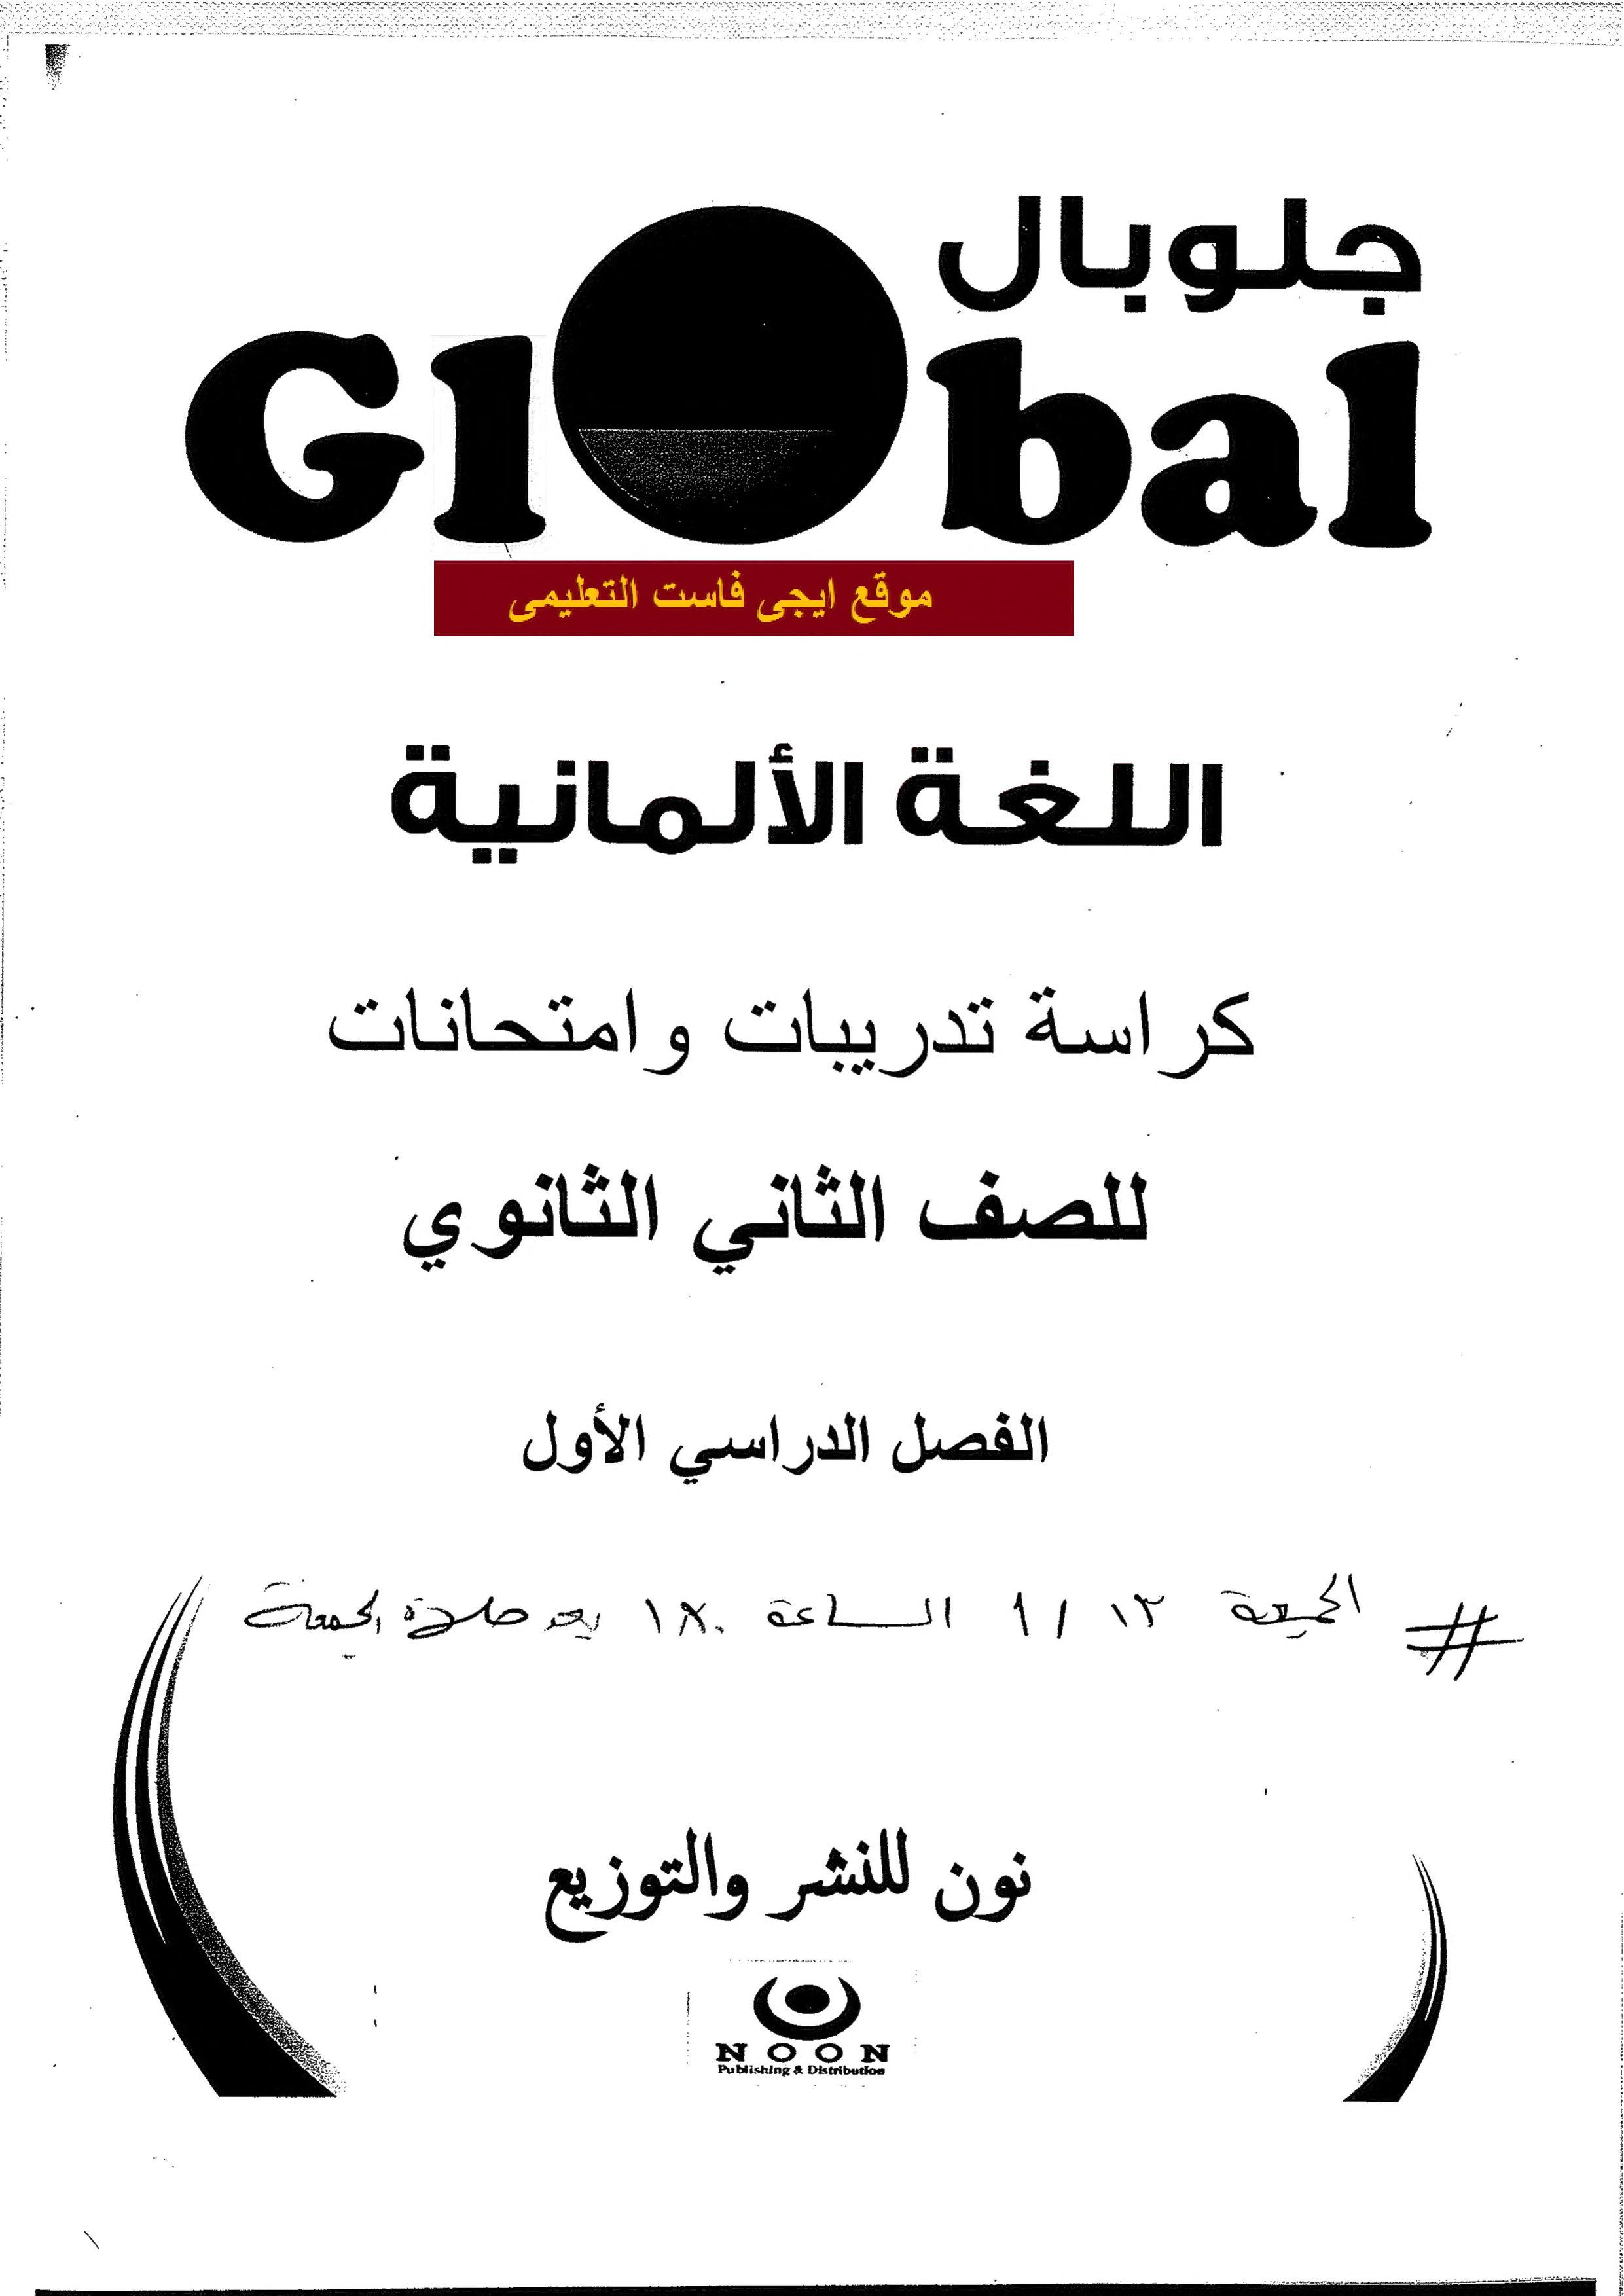 جلوبال
Global
موقع ايجى فاست التعليمى
اللغة الألمانية
كراسة تدريبات وامتحانات
للصف الثاني الثانوي
الفصل الدراسي الأول
# الجمعة ١٣ / ٩ الساعة بعد صلاة الجمعة
نون للنشر والتوزيع
NOON
Publishing & Distribution